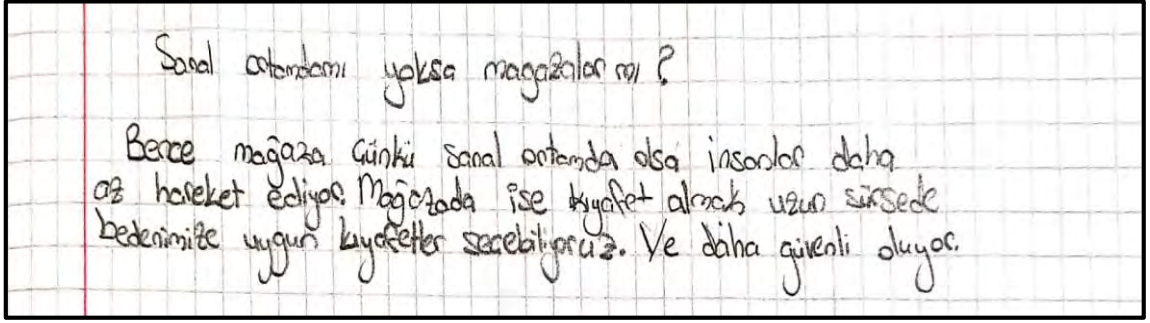 Sanal ortamdamı yoksa magazalar mı ?
Bence mağaza Çünkü sanal ortamda olsa insanlar daha
az hareket ediyor. Mağazada ise kıyafet almak uzun sürsede
bedenimize uygun kıyafetler secebiliyoruz. Ve daha güvenli oluyor.